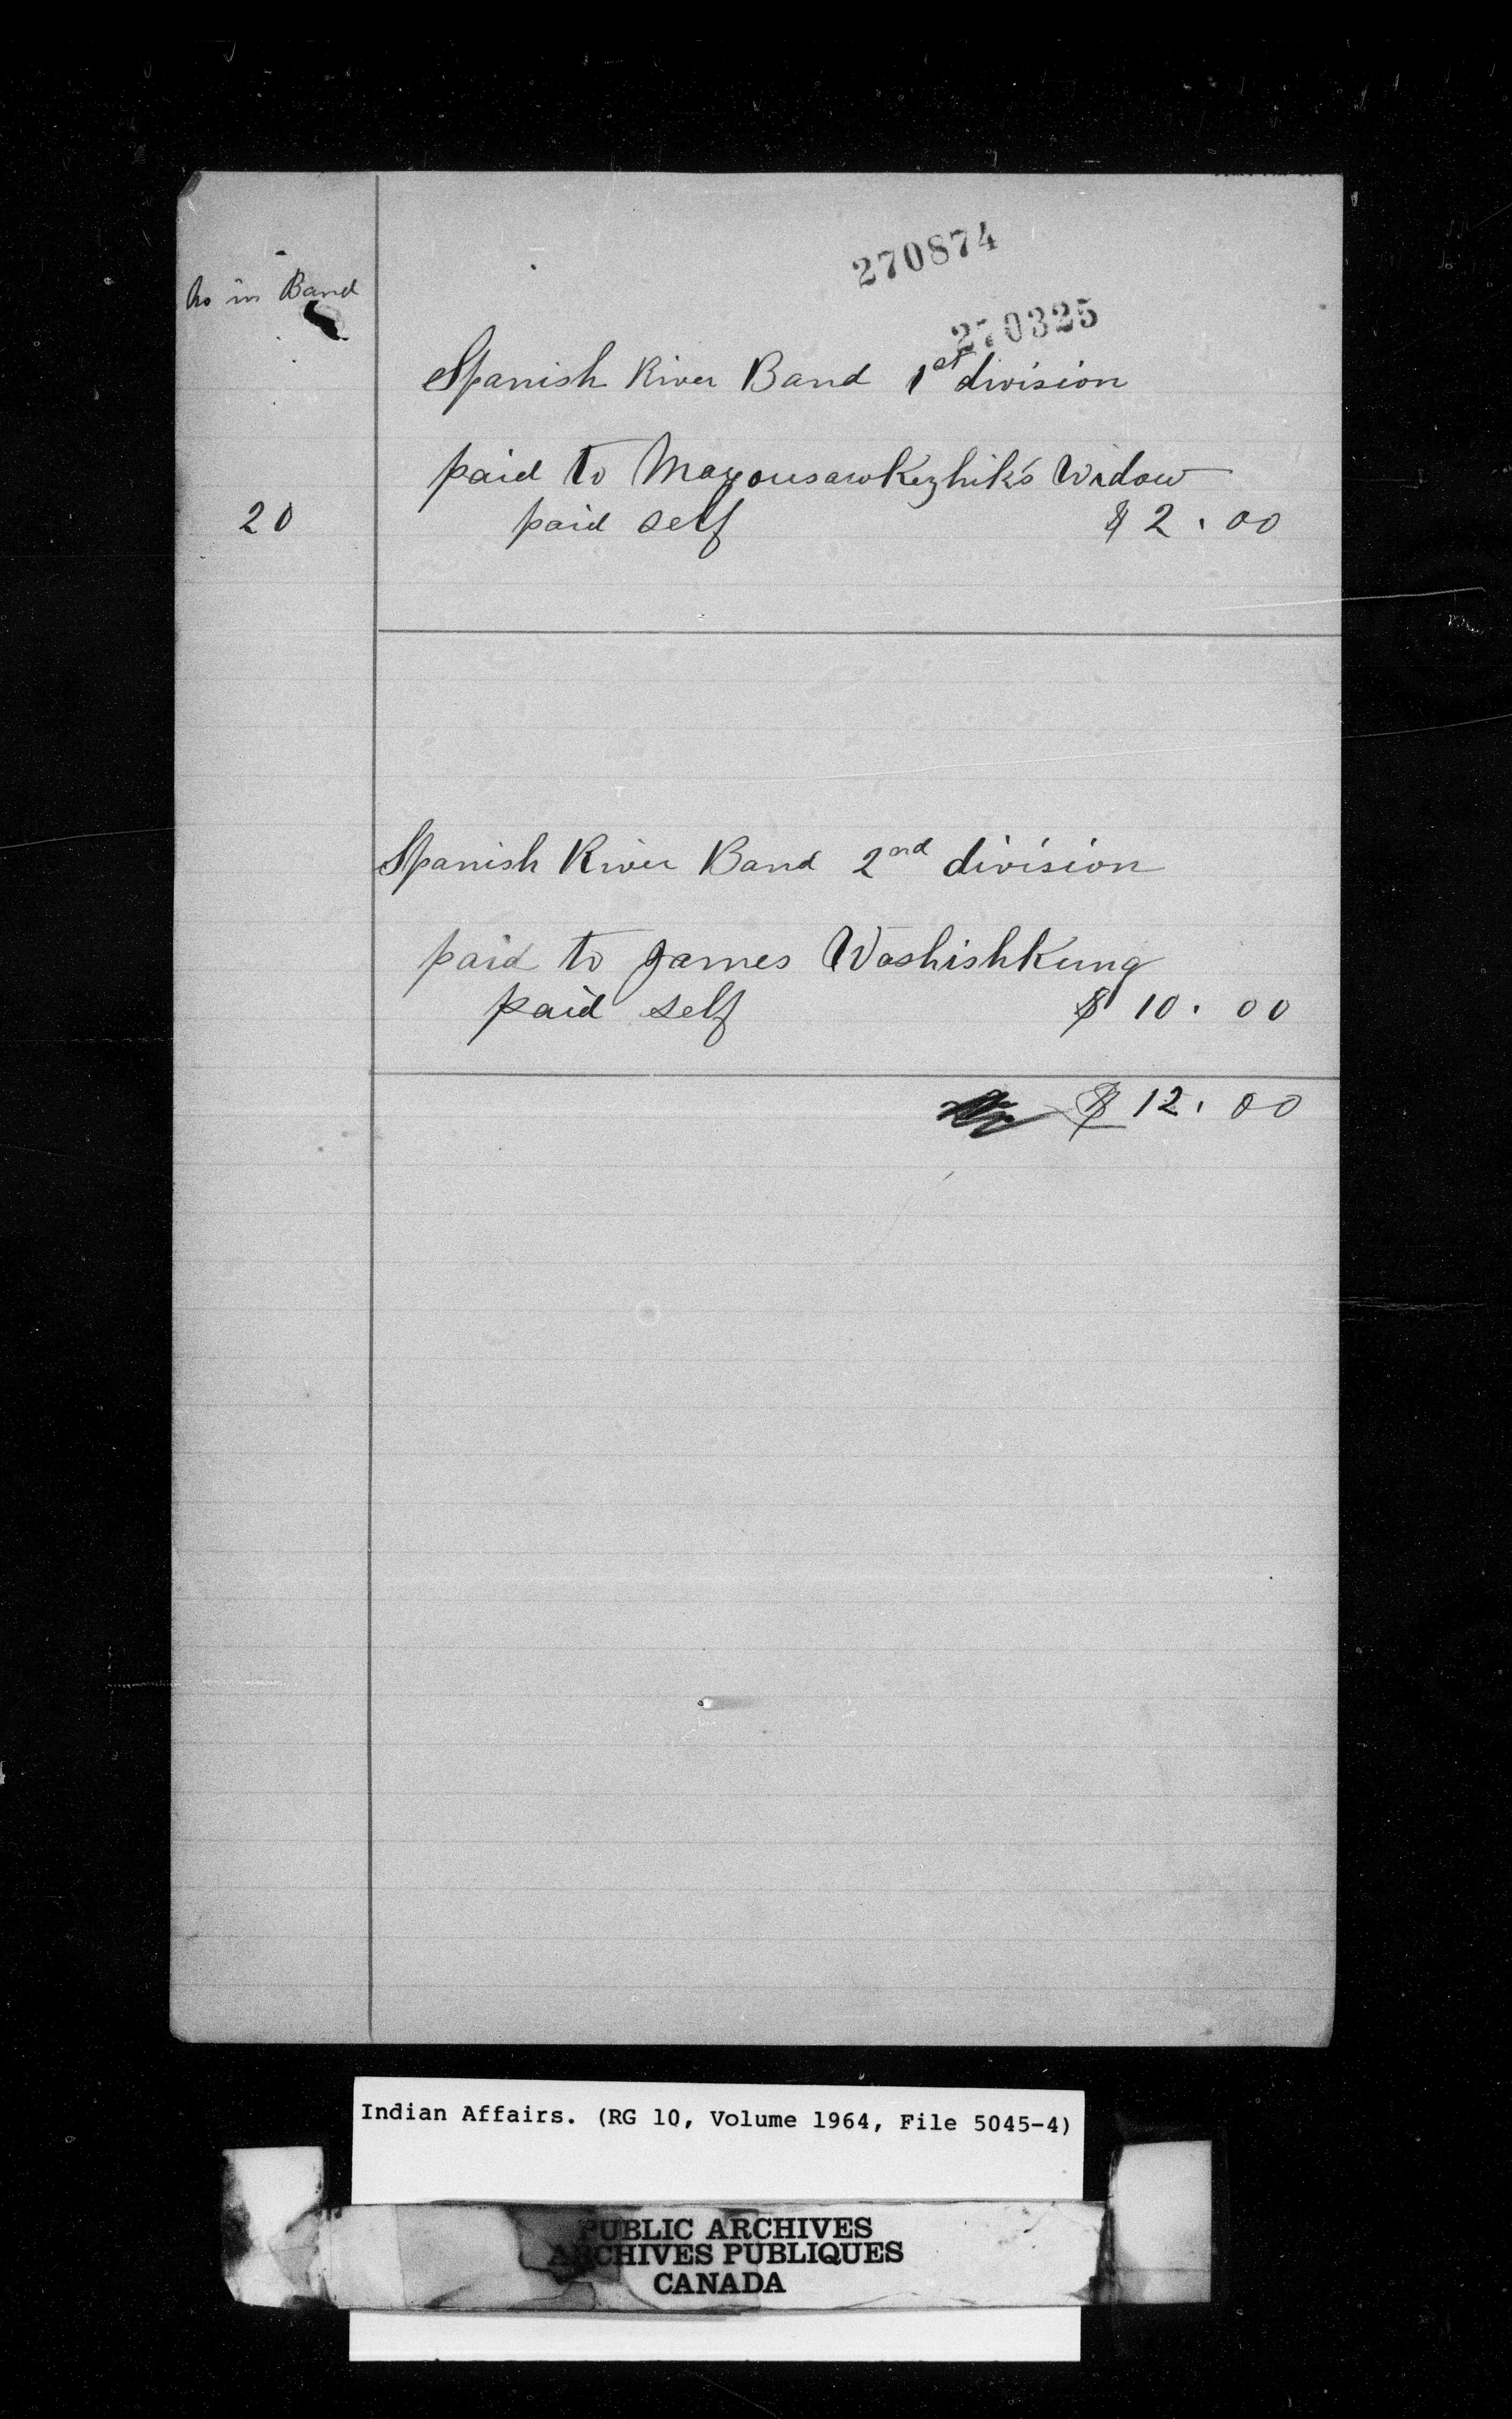 270874
No in Band
270325
Spanish River Band 1st division
paid to Mayousawkezhik's Widow
20 paid self $ 2.00
Spanish River Band 2nd division
paid to James Washishkung
paid self $ 10.00
$ 12.00
Indian Affairs. (RG 10, Volume 1964, File 5045-4)
PUBLIC ARCHIVES
ARCHIVES PUBLIQUES
CANADA